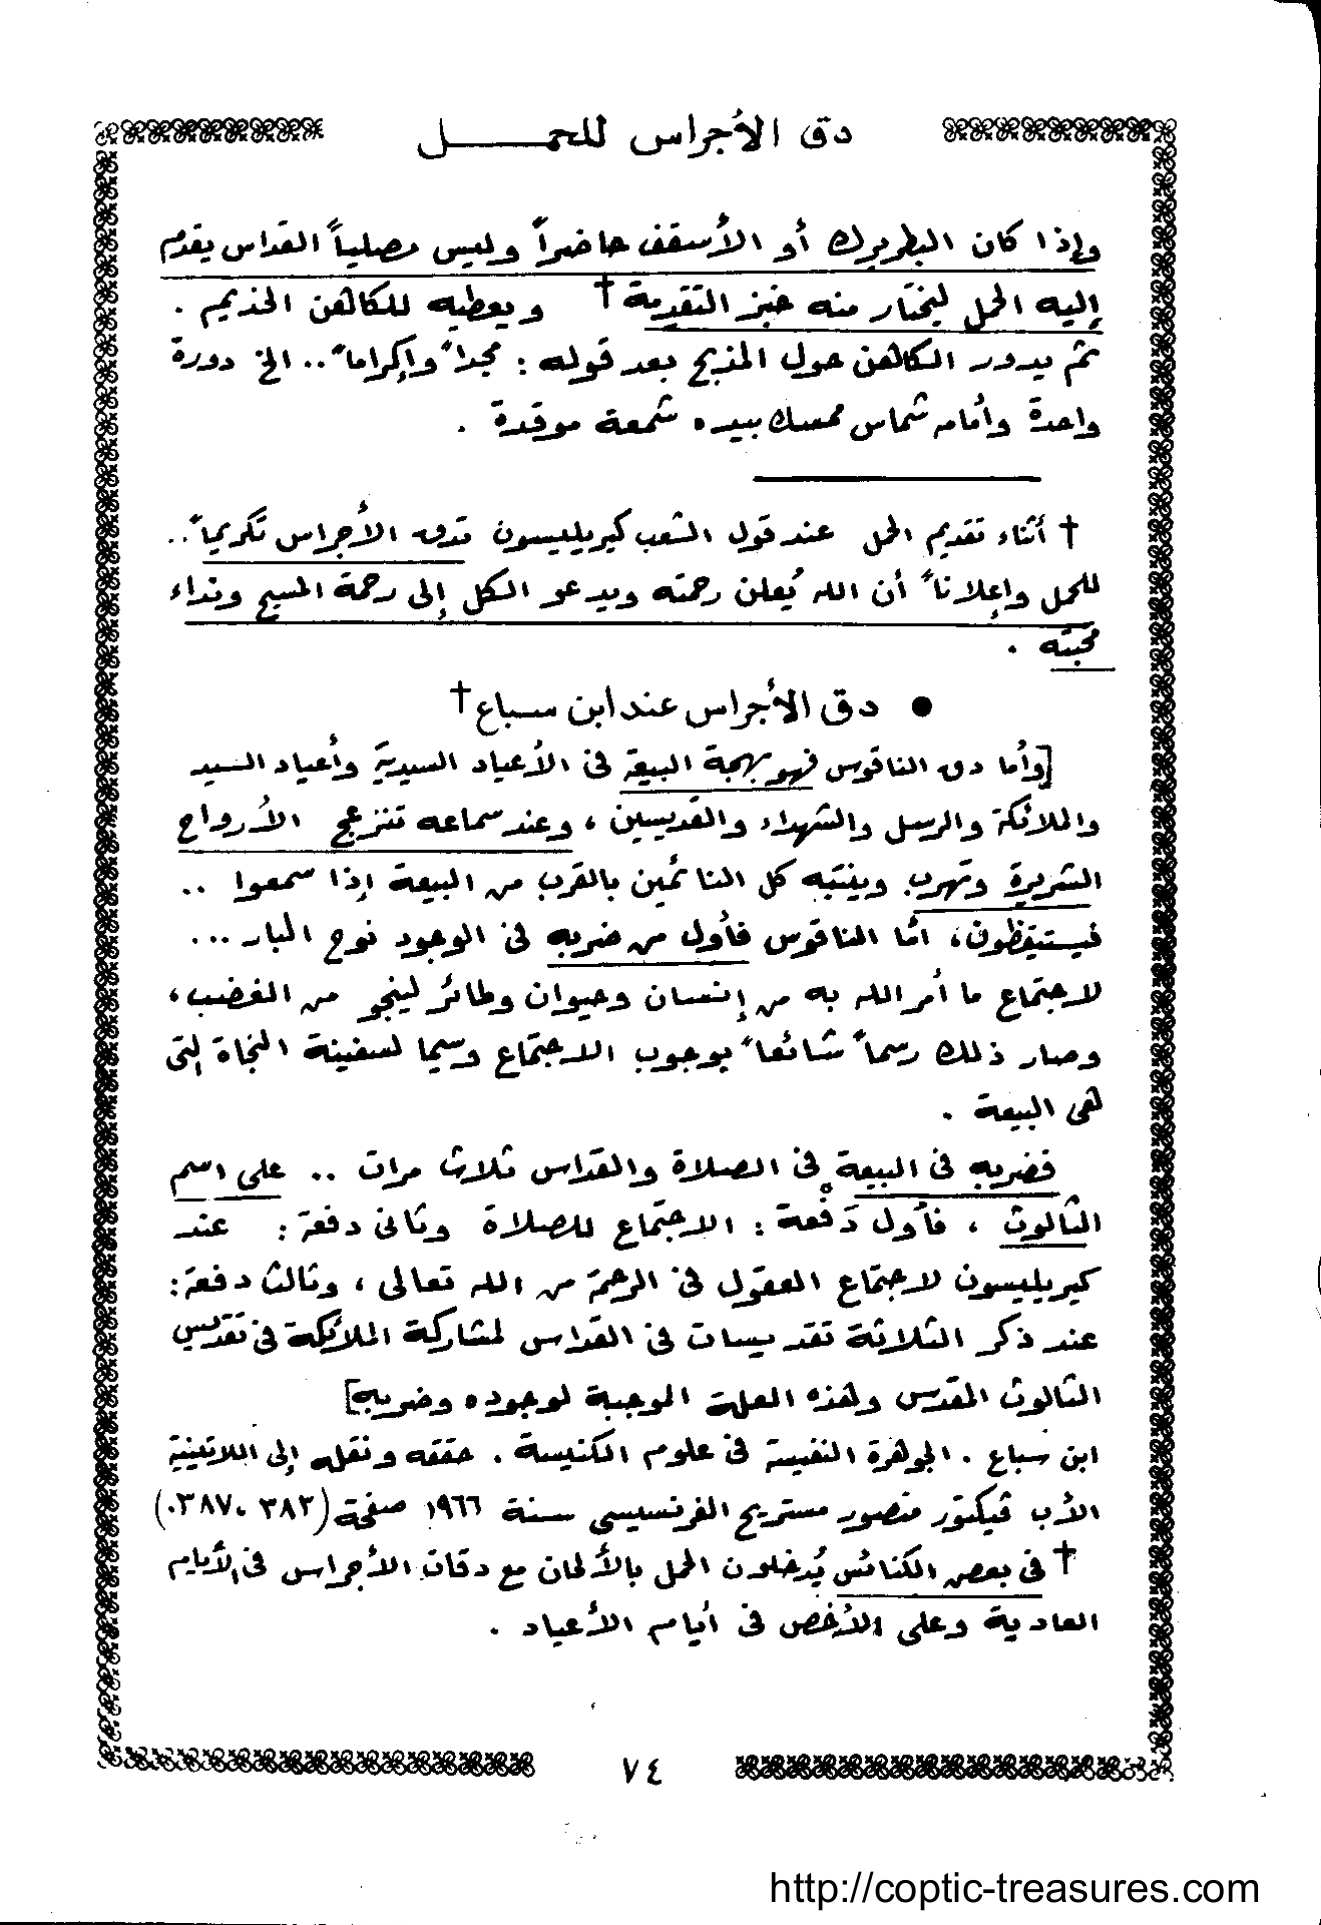 دق الأجراس للحمـــــــل
وإذا كان البطريرك أو الأسقف حاضراً وليس مصلياً القداس يقدم
إليه الحمل ليختار منه خبز التقدمة † ويعطيه للكاهن الخديم .
ثم يدور الكاهن حول المذبح بعد قوله : مجداً وإكراماً .. الخ دورة
واحدة وأمامه شماس ممسك بيده شمعة موقدة .
† أثناء تقديم الحمل عند قول الشعب كيريليسون تدق الأجراس تكريماً ..
للحمل وإعلاناً أن الله يُعلن رحمته ويدعو الكل إلى رحمة المسيح ونداء
محبته .
● دق الأجراس عند ابن سباع †
[وأما دق الناقوس فهو بهجة البيعة فى الأعياد السيدية وأعياد السيد
والملائكة والرسل والشهداء والقديسين ، وعند سماعه تنزعج الأرواح
الشريرة وتهرب وينتبه كل النائمين بالقرب من البيعة إذا سمعوا ..
فيستيقظون ، أما الناقوس فأول من ضربه فى الوجود نوح البار ...
لاجتماع ما أمر الله به من إنسان وحيوان وطائر لينجو من الغضب ،
وصار ذلك رسماً شائعاً بوجوب الاجتماع وسيما لسفينة النجاة التى
هى البيعة .
فضربه فى البيعة فى الصلاة والقداس ثلاث مرات .. على اسم
الثالوث ، فأول دَفْعة : الاجتماع للصلاة وثانى دفعة : عند
كيريليسون لاجتماع العقول فى الرحمة من الله تعالى ، وثالث دفعة :
عند ذكر الثلاثة تقديسات فى القداس لمشاركة الملائكة فى تقديس
الثالوث المقدس ولهذه العلة الموجبة لوجوده وضربه]
ابن سباع . الجوهرة النفيسة فى علوم الكنيسة . حققه ونقله إلى اللاتينية
الأب فيكتور منصور مستريح الفرنسيسى سنة ١٩٦٦ صفحة (٣٨٢ ، ٣٨٧)
† فى بعض الكنائس يُدخلون الحمل بالألحان مع دقات الأجراس فى الأيام
العادية وعلى الأخص فى أيام الأعياد .
٧٤
http://coptic-treasures.com